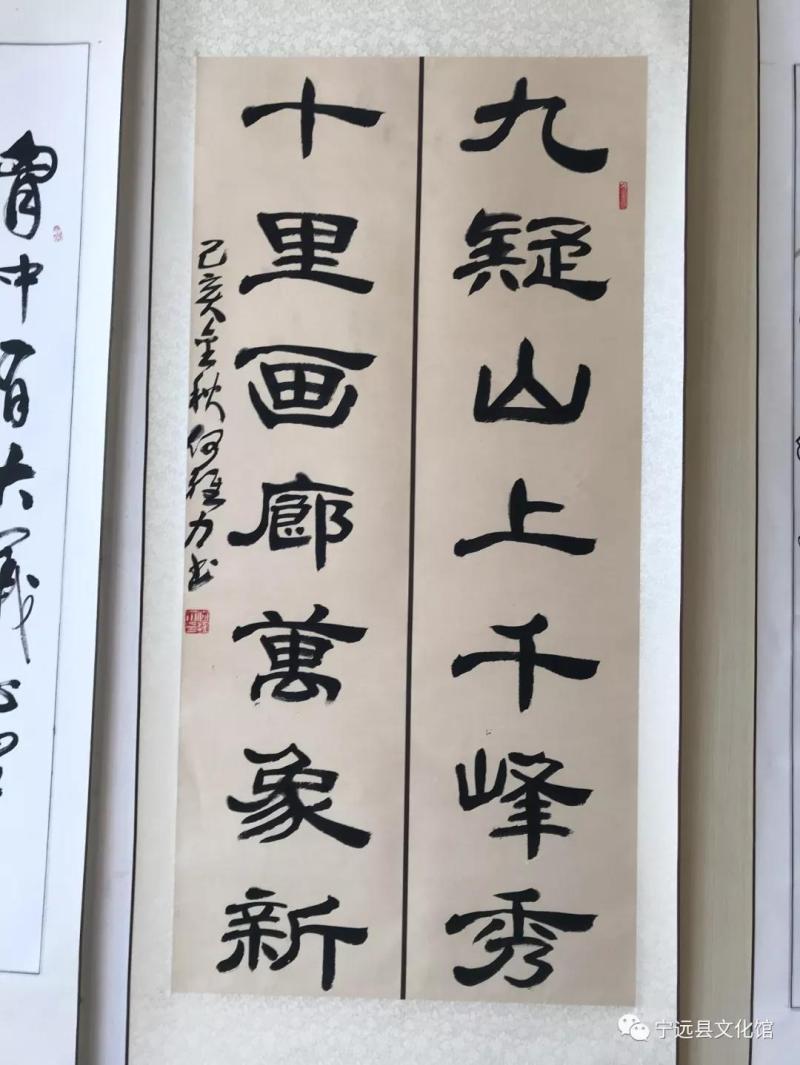 九疑山上千峰秀
十里画廊萬象新
己亥金秋何雄力书
胷中有大義
宁远县文化馆